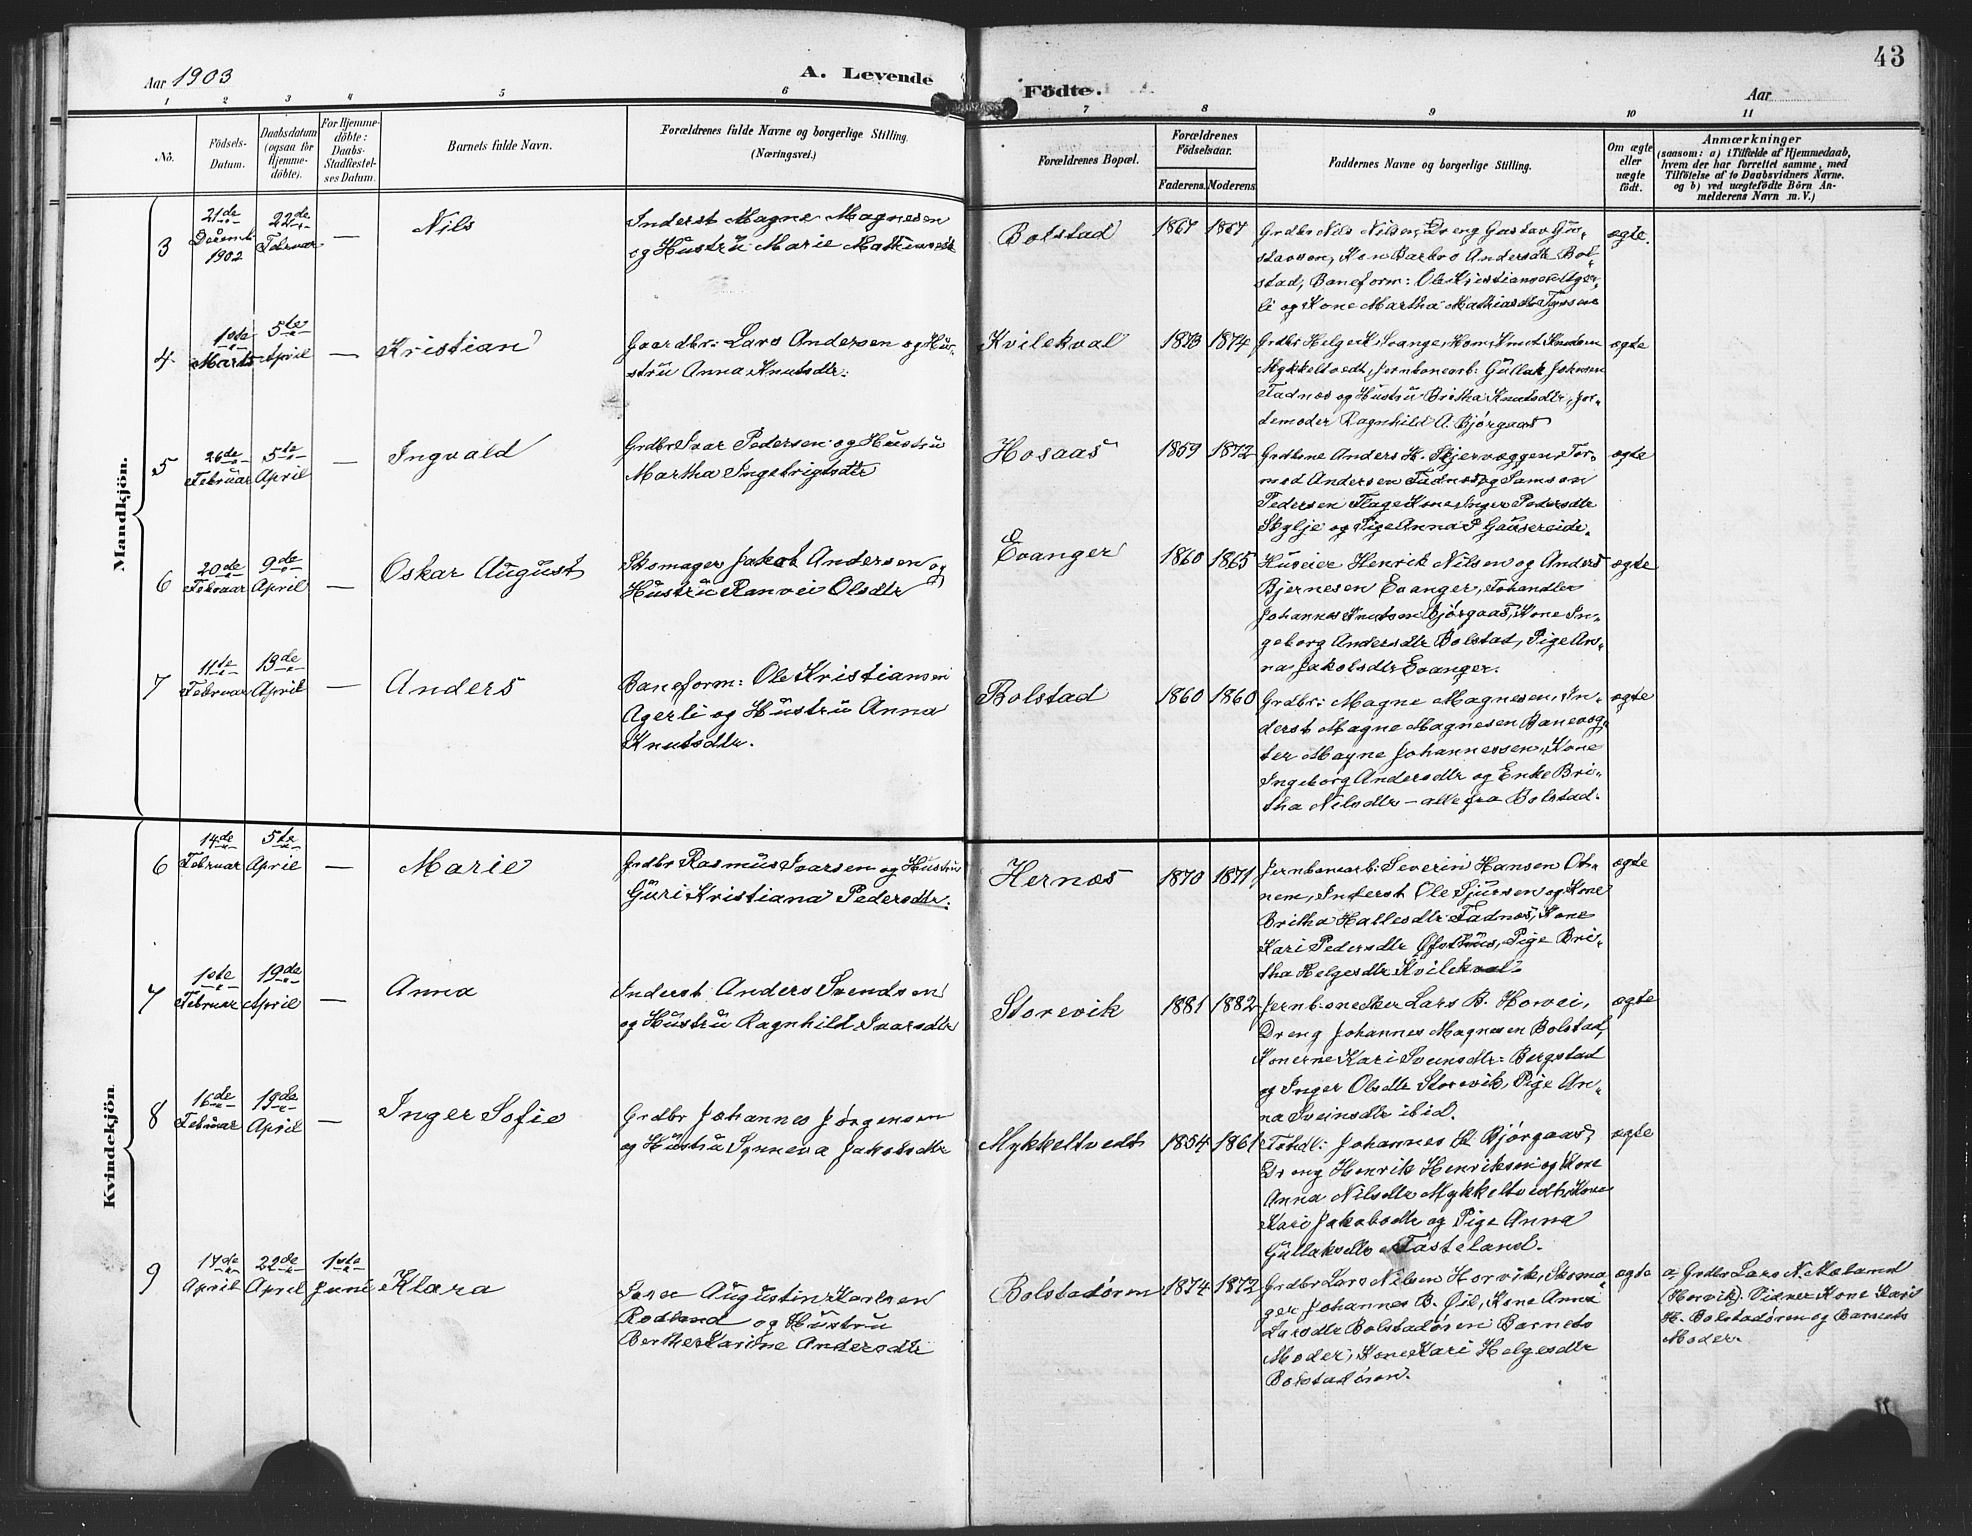 Aar 1903
A. Levende
Födte.
Aar
43
1 2 3 4 5 6 7 8 9 10 11
No.
Födsels-
Datum.
Daabsdatum
(ogsaa for
Hjemme-
döbte).
For Hjemme-
döbte:
Daabs-
Stadfæstel-
ses Datum.
Barnets fulde Navn.
Forældrenes fulde Navne og borgerlige Stilling.
(Næringsvei.)
Forældrenes Bopæl.
Forældrenes
Födselsaar.
Faderens. Moderens.
Faddernes Navne og borgerlige Stilling.
Om ægte
eller
uægte
födt.
Anmærkninger
(saasom: a) i Tilfælde af Hjemmedaab,
hvem der har forrettet samme, med
Tilföielse af to Daabsvidners Navne.
og b) ved uægtefödte Börn An-
melderens Navn m. V.)
Mandkjön.
3
21de
Decemb
1902
22de
Februar
—
Nils
Inderst Magne Magnesen
og Hustru Marie
Bolstad
1867 1867
Grdbr Nils Nilsen, Dreng Gustav Gu-
stavsen, Kon Barbro Andersdtr Bol-
stad, Baneform: Ole Kristiansen Ager-
li og Kone Martha Mathiasdtr
ægte.
4
1ste
Marts
5te
April
—
Kristian
Gaardbr: Lars Andersen og Hu-
stru Anna Knutsdtr.
Kvilekval
1873 1874
Grdbr Helge K. Svange, Hom, Knut Knudsen
Mykkeltvedt, Jernbanearb: Gullak Johnsen
Fadnæs og Hustru Britha Knutsdtr, Jor-
demoder Ragnhild A. Bjørgaas
ægte
5
26de
Februar
5te
April
—
Ingvald
Grdbr Ivar Pedersen og Hustru
Martha Ingebrigtsdtr
Hosaas
1859 1872
Grdbrne Anders K. Skjervæggen, Tor-
mod Andersen Fadnæs og Samson
Pedersen Flage Kone Inger Pedersdtr
Styljе og Pige Anna P Gausereide.
ægte
6
20de
Februar
9de
April
—
Oskar August
Skomager Jakob Andersen og
Hustru Ranvei Olsdtr
Evanger
1860 1865
Huseier Henrik Nilsen og Anders
Bjernesen Evanger, Fohandler
Johannes Knutsen Bjørgaas, Kone In-
geborg Andersdtr Bolstad, Pige An-
na Jakobsdtr Evanger.
ægte
7
11te
Februar
13de
April
—
Anders
Baneform: Ole Kristiansen
Agerli og Hustru Anna
Knutsdtr.
Bolstad
1860 1860
Grdbr: Magne Magnesen, In-
derst Magne Magnesen Banevog-
ter Magne Johannessen, Kone
Ingeborg Andersdtr og Enke Bri-
tha Nilsdtr — alle fra Bolstad.
ægte
Kvindekjön
6
14de
Februar
5te
April
—
Marie
Grdbr Rasmus Ivarsen og Hustru
Guri Kristiana Pedersdtr.
Hernæs
1870 1871
Jernbanearb: Severin Hansen Ot-
nem, Inderst Ole Sjursen og Kone
Britha Hallesdtr Fadnæs, Kone
Kari Pedersdtr Øfsthus, Pige Bri-
tha Helgesdtr Kvilekval.
ægte
7
1ste
Februar
19de
April
—
Anna
Inderst Anders Svendsen
og Hustru Ragnhild Ivarsdtr
Storevik
1881 1882
Lars B. Horvei,
Dreng Johannes Magnesen Bolstad,
Konerne Kari Sveinsdtr: Bergstad
og Inger Olsdtr Storevik, Pige An-
na Sveinsdtr ibid.
ægte
8
16de
Februar
19de
April
—
Inger Sofie
Grdbr Johannes Jørgensen
og Hustru Synneva Jakobsdtr
Mykkeltvedt
1854 1861
Johannes K Bjørgaas,
Dreng Henrik Henriksen og Kone
Anna Nilsdtr Mykkeltvedt, Kone
Kari Jakobsdtr og Pige Anna
Gullaksdtr Fasteland.
ægte
9
17de
April
22de
April
1ste
Juni
Klara
Augustin Karlsen
Rodland og Hustru
Berthe Karine Andersdtr
Bolstadøren
1874 1872
Grdbr Lars Nilsen Horvik, Skoma-
ger Johannes B. Øie, Kone Anna
Larsdtr Bolstadøren Barnets
Moder, Kone Kari Helgesdtr
Bolstadøren.
ægte
a, Grdbr Lars N. Møland
(Horvik). Vidner Kone Kari
H. Bolstadøren og Barnets
Moder.